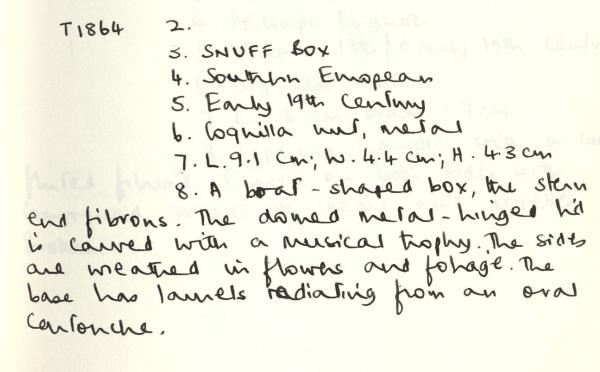 T1864 2.
3. SNUFF BOX
4. Southern European
5. Early 19th Century
6. Coquilla nut, metal
7. L. 9.1 cm; W. 4.4 cm; H. 43 cm
8. A boat-shaped box, the stern
end fibrous. The domed metal-hinged lid
is carved with a musical trophy. The sides
are wreathed in flowers and foliage. The
base has laurels radiating from an oval
cartouche.